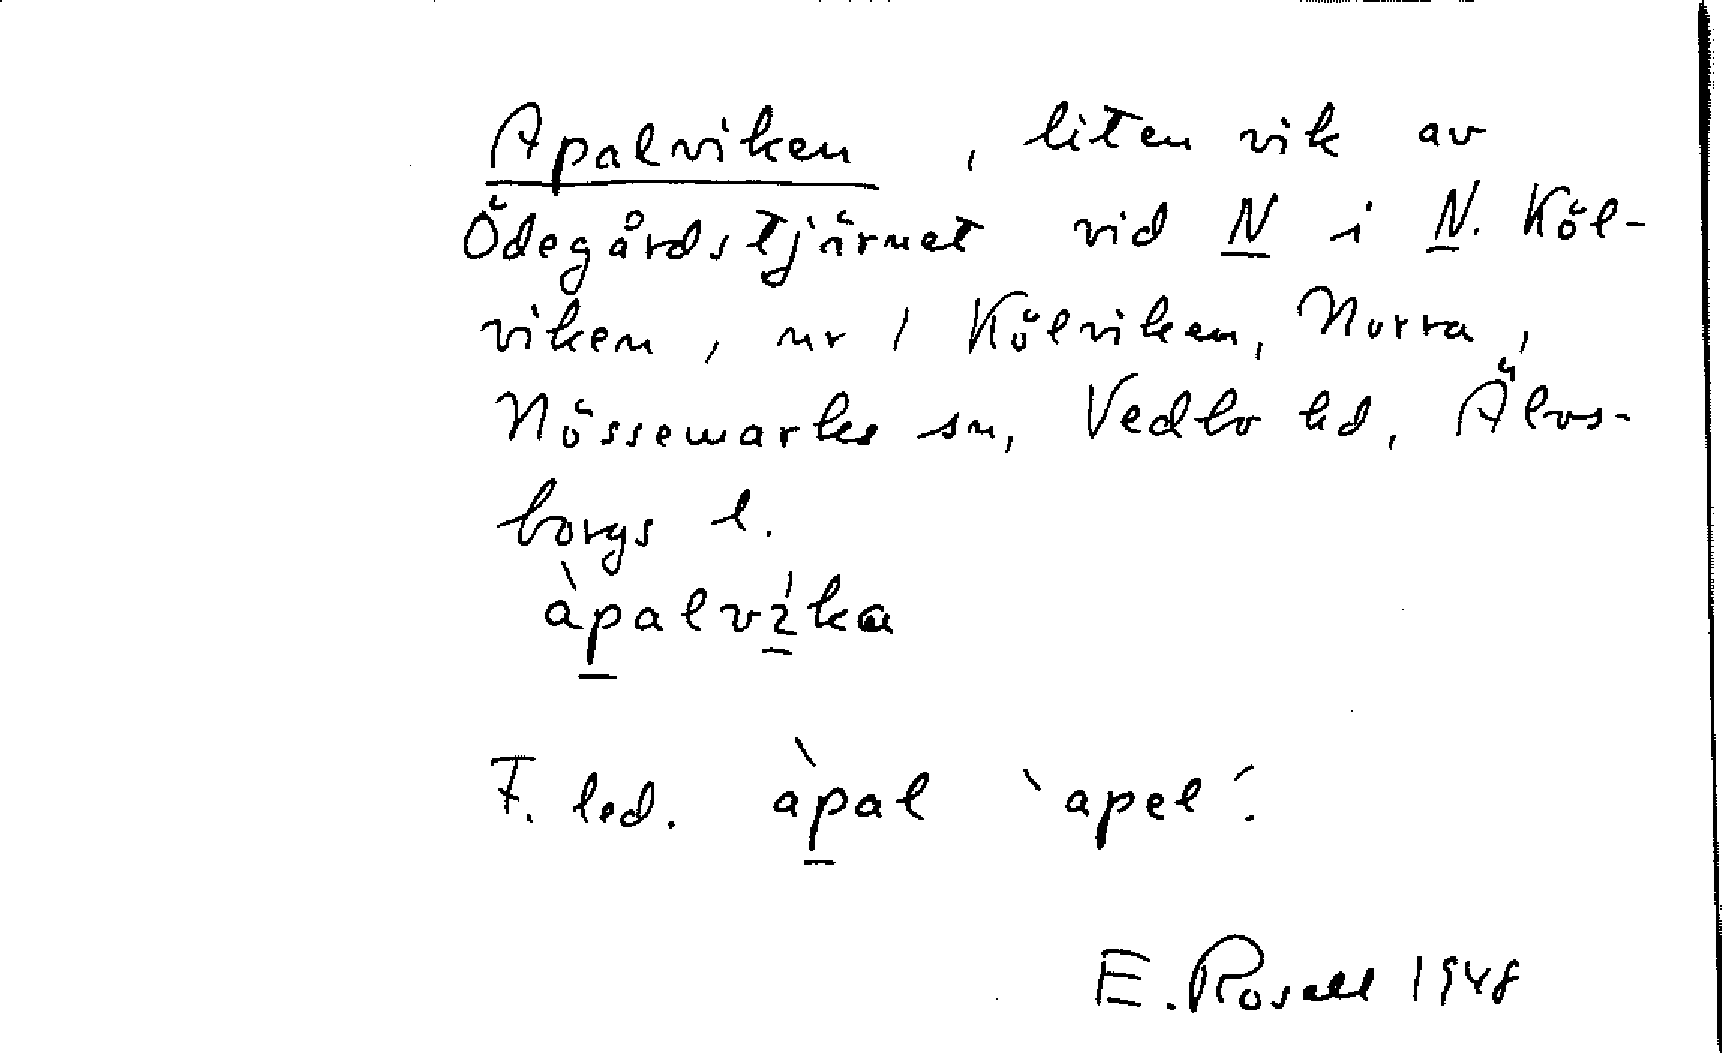 Apalviken, liten vik av
Ödegårdstjärnet vid N i N. Köl-
viken, nr 1 Kölviken, Norra,
Nössemarks sn, Vedbo hd, Älvs-
borgs l.
àpalvíka
F. led. àpal `apel´.
E. Rosell 1948